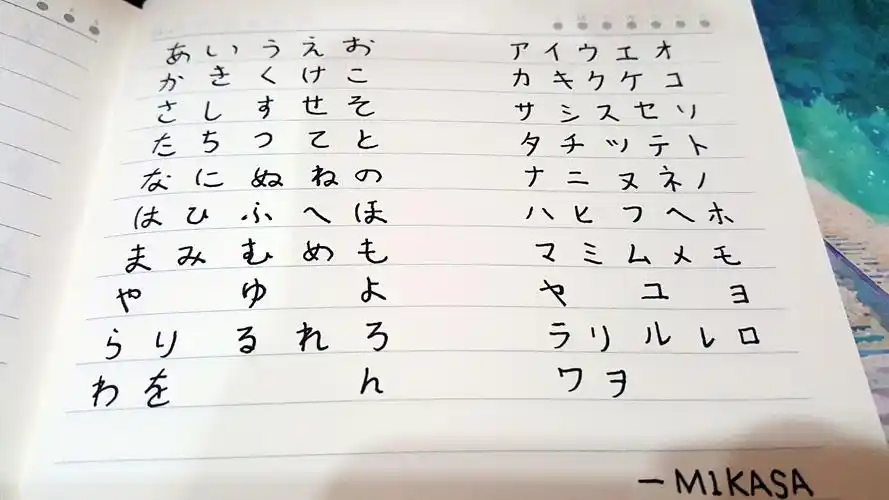 あ い う え お ア イ ウ エ オ
か き く け こ カ キ ク ケ コ
さ し す せ そ サ シ ス セ ソ
た ち つ て と タ チ ツ テ ト
な に ぬ ね の ナ ニ ヌ ネ ノ
は ひ ふ へ ほ ハ ヒ フ ヘ ホ
ま み む め も マ ミ ム メ モ
や ゆ よ ヤ ユ ヨ
ら り る れ ろ ラ リ ル レ ロ
わ を ん ワ ヲ
— M1KASA